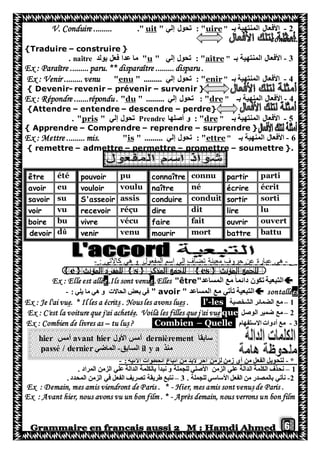 V. Conduire ........ ." uit " تحول إلي : " uire " الأفعال المنتهية بـ - 2
أمثلة لتلك الأفعال
{Traduire – construire }
. naitre ما عدا فعل يولد " u " تحول إلي : " aitre " الأفعال المنتهية بـ - 3
Ex : Paraître ......... paru. ** disparaître ......... disparu .
Ex : Venir ......... venu "enu" ......... تحول إلي : " enir " الأفعال المنتهية بـ - 4
{ Devenir- revenir – prévenir – survenir } أمثلة لتلك الأفعال
Ex : Répondre ......répondu . "du" ......... تحول إلي : " dre " الأفعال المنتهية بـ -
{Attendre – entendre – descendre – perdre} أمثلة لتلك الأفعال
. " pris " تحول إلي Prendre و أصلها : " dre " الأفعال المنتهية بـ - 5
{ Apprendre – Comprendre – reprendre – surprendre } أمثلة لتلك الأفعال
Ex : Mettre ......... mis. "is" ......... تحول إلي : " ettre " الأفعال المنتهية بـ - 6
{ remettre – admettre – permettre – promettre – soumettre }.
شواذ اسم المفعول
être été pouvoir pu connaître connu partir parti
avoir eu vouloir voulu naître né écrire écrit
savoir su S'asseoir assis conduire conduit sortir sorti
voir vu recevoir réçu dire dit lire lu
boire bu vivre vécu faire fait ouvrir ouvert
devoir dû venir venu mourir mort battre battu
L'accord التبعية
- هي عبارة عن حروف معينة تضاف إلي اسم المفعول و هي كالآتي : -
( e ) للمفرد المؤنث ( s ) للجمع المذكر ( es ) للجمع المؤنث
Ex : Elle est allée. Ils sont venus. Elles "être" التبعية تكون دائما مع المساعد
sont allées. : - في بعض الحالات و هي ما يلي " avoir " التبعية تأتي مع المساعد
Ex : Je l'ai vue. * Il les a écrits . Nous les avons lues . l'-les مع الضمائر الشخصية – 1
Ex : C'est la voiture que j'ai achetée. Voilà les filles que j'ai vues que مع ضمير الوصل – 2
Ex : Combien de livres as – tu lus ? Combien – Quelle مع أدوات الاستفهام - 3
hier أمس avant hier أمس الأول dernièrement سابقا الكلمات الدالة
passé / dernier السابق، الماضي il y a منذ ملحوظة هامة
1 – نحذف الكلمة الدالة علي الزمن الأصلي للجملة و نبدأ بالكلمة الدالة علي الزمن المراد .
2- نأتي بالمصدر من الفعل الأساسي للجملة . 3 – نتبع طريقة تصريف الفعل في الزمن المحدد .
Ex : Demain, mes amis viendront de Paris . * - Hier, mes amis sont venus de Paris .
Ex : Avant hier, nous avons vu un bon film . * - Après demain, nous verrons un bon film
Grammaire en français aussi 2 M : Hamdi Ahmed 6